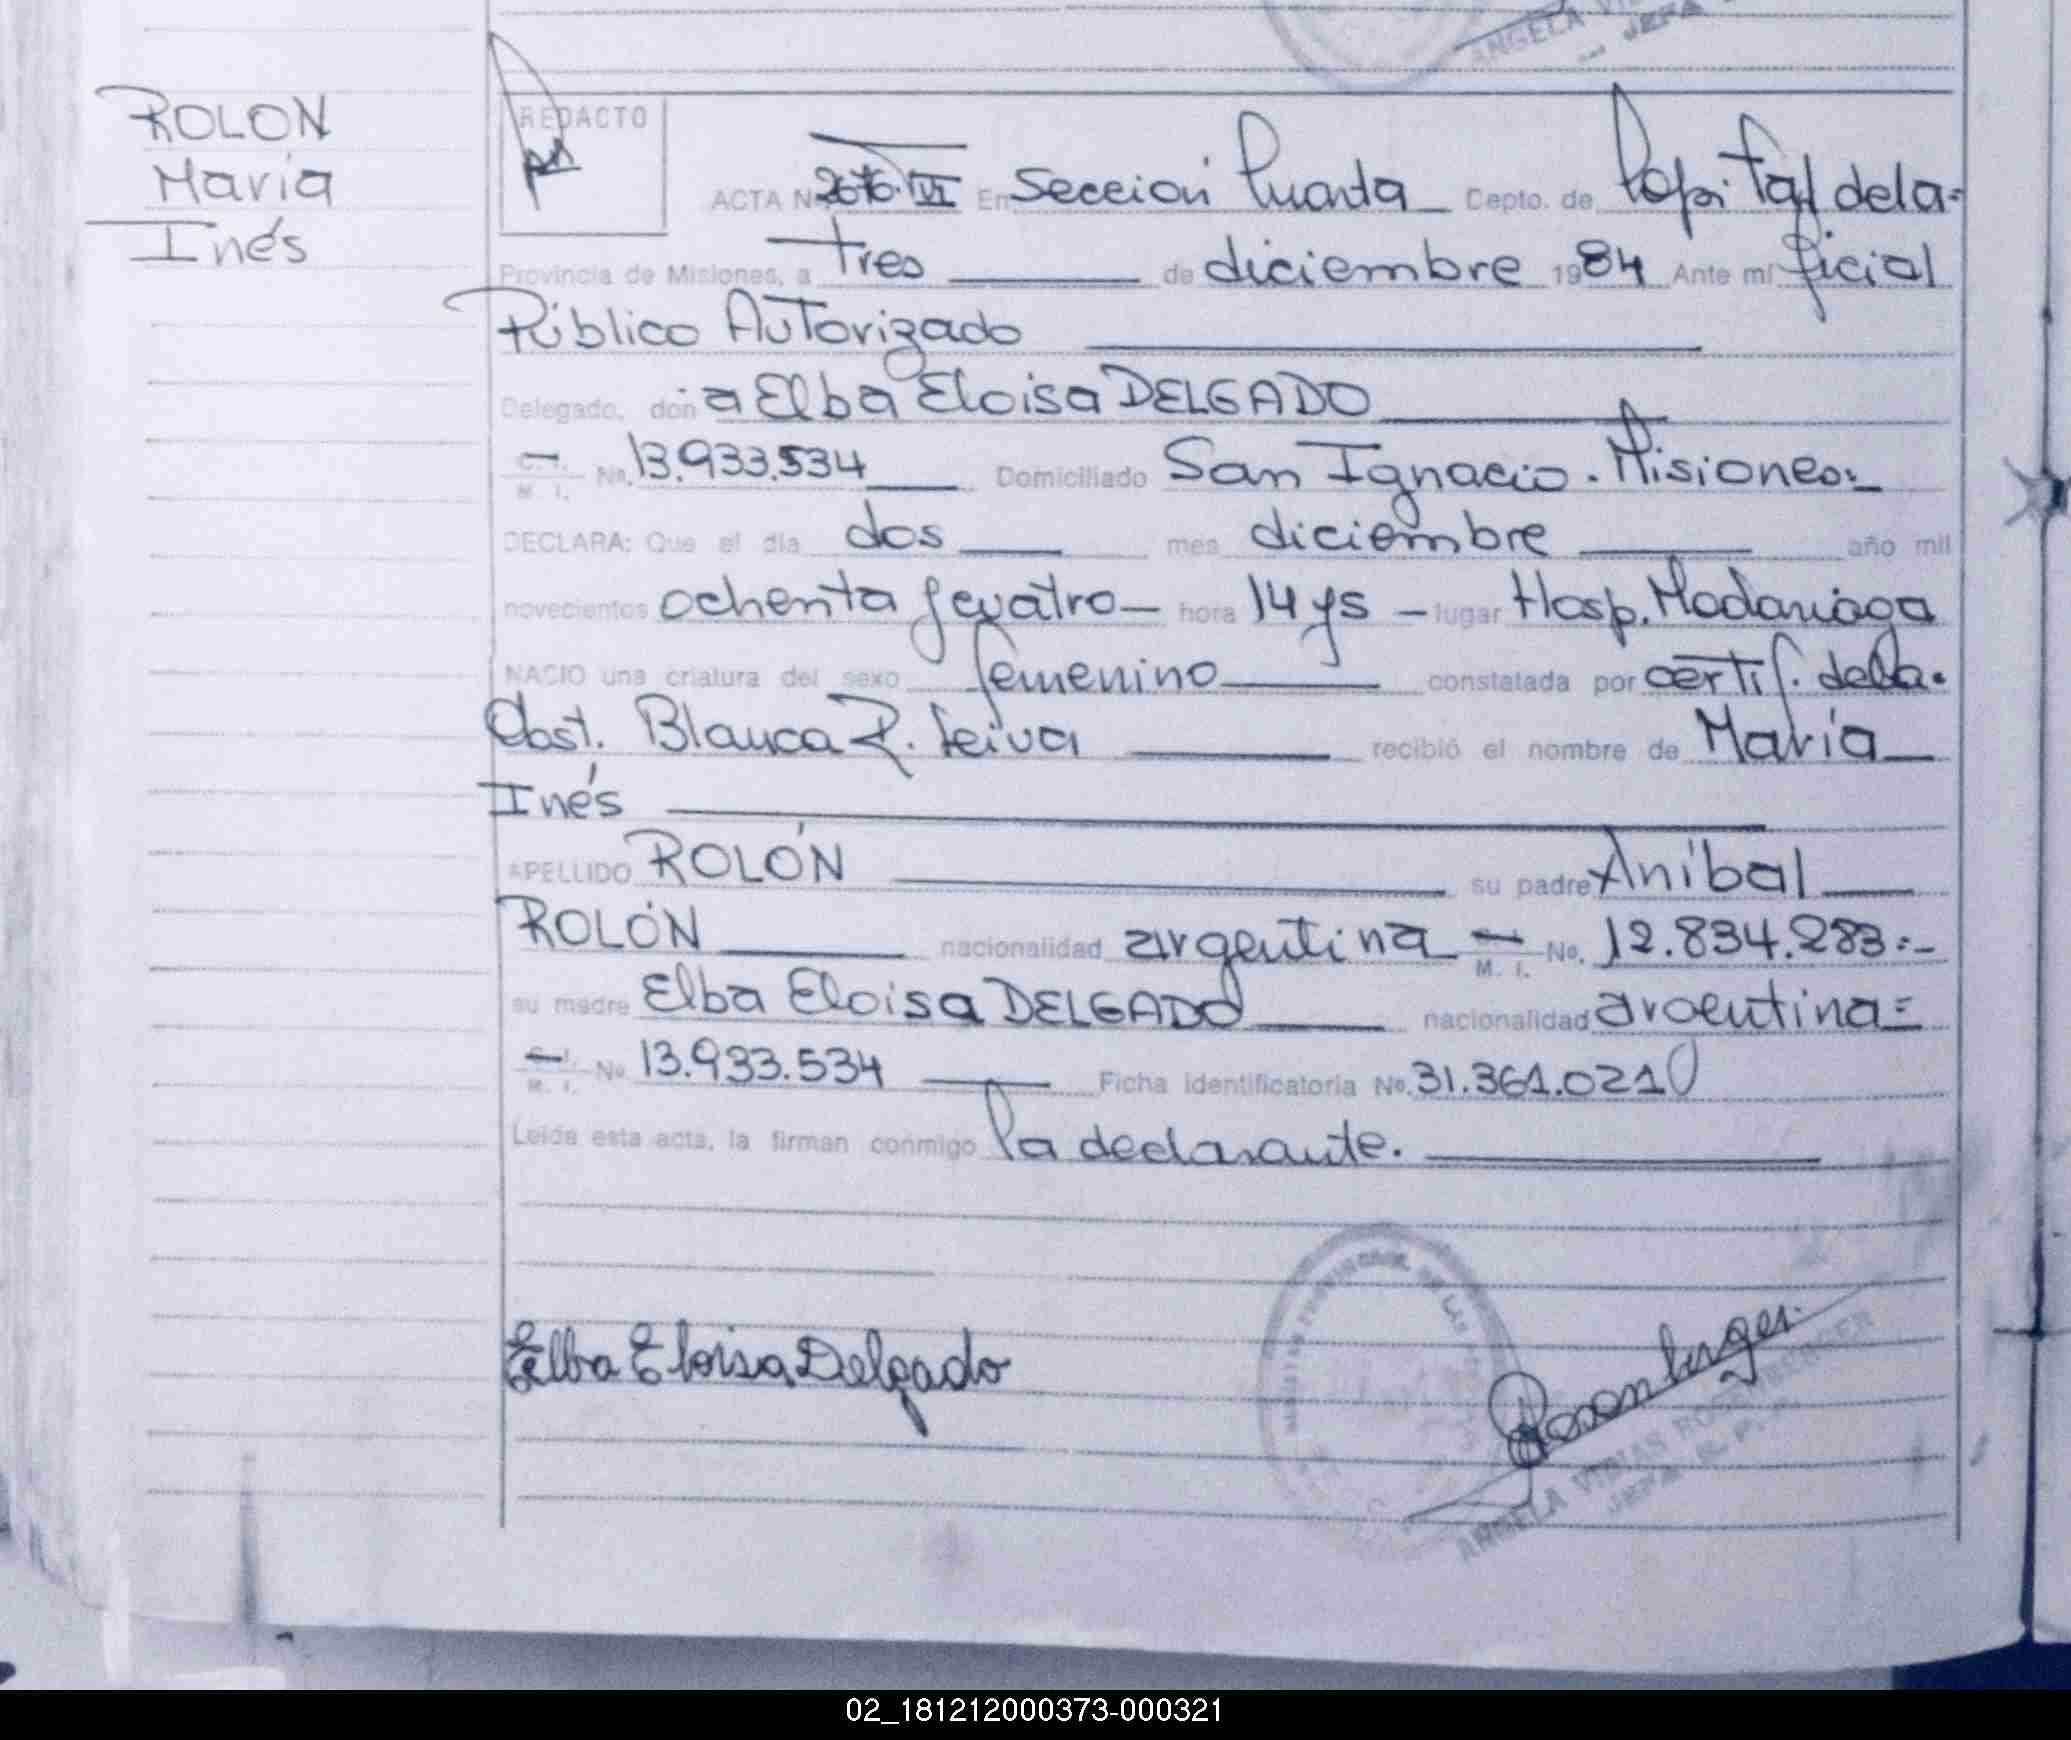 ANGELA
JEFA
ROLON
María
Inés
REDACTO
ACTA Nº 2676. VI En Sección Cuarta Depto. de Capital de la
Provincia de Misiones, a tres de diciembre 1984 Ante mí Oficial
Público Autorizado
Delegado, don a Elba Eloisa DELGADO
C. I. M. I. No. 13.933.534 Domiciliado San Ignacio. Misiones
DECLARA: Que el día dos mes diciembre año mil
novecientos ochenta y cuatro hora 14 ys lugar Hosp. Madariaga
NACIO una criatura del sexo femenino constatada por certif. de la
Obst. Blanca R. Leiva recibió el nombre de María
Inés
APELLIDO ROLÓN su padre Aníbal
ROLÓN nacionalidad argentina M. I. No. 12.834.283
su madre Elba Eloisa DELGADO nacionalidad argentina
C. I. M. I. No 13.933.534 Ficha identificatoria No. 31.361.021
Leída esta acta, la firman conmigo la declarante.
Elba Eloisa Delgado
Rosenberger
ANGELA VIBIAS ROSENBERGER
JEFA R. P. P.
02_181212000373-000321